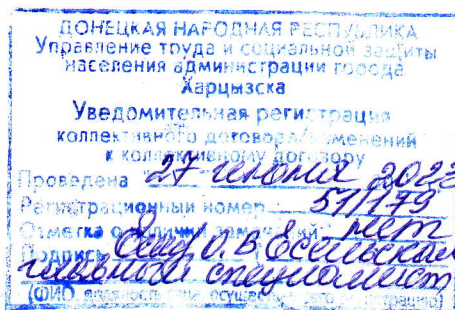 ДОНЕЦКАЯ НАРОДНАЯ РЕСПУБЛИКА
Управление труда и социальной защиты
населения администрации города
Харцызска
Уведомительная регистрация
коллективного договора/изменений
к коллективному договору
Проведена 27 2023
Регистрационный номер 51/179
Отметка о наличии замечаний: нет
Подпись О.В Есельская
главный специалист
(ФИО